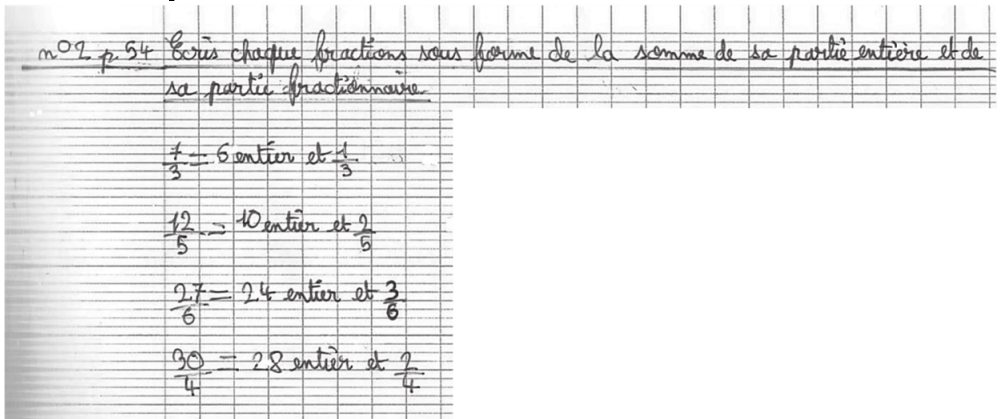 n°2 p.54 Ecris chaque fractions sous forme de la somme de sa partie entière et de
sa partie fractionnaire
7/3 = 6 entier et 1/3
12/5 = 10 entier et 2/5
27/6 = 24 entier et 3/6
30/4 = 28 entier et 2/4